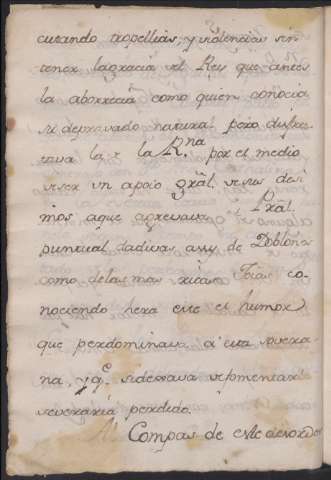 cutando tropellias, y violencias sin
tener la gracia del Rey que antes
la aborrecia como quien conocia
su depravado natural. pero disfru-
tava la de la R.na por el medio
de ser un apoio gral. de sus desi-
mos a que agregava Pral.
puntual dadivas assi de Doblones
como delas mas ricas Joias co-
nociendo hera este el humor
que perdominava a esta sovera-
na, y q.e si dexava de fomentar
se veraria perdido.
Al Compas de este desorden